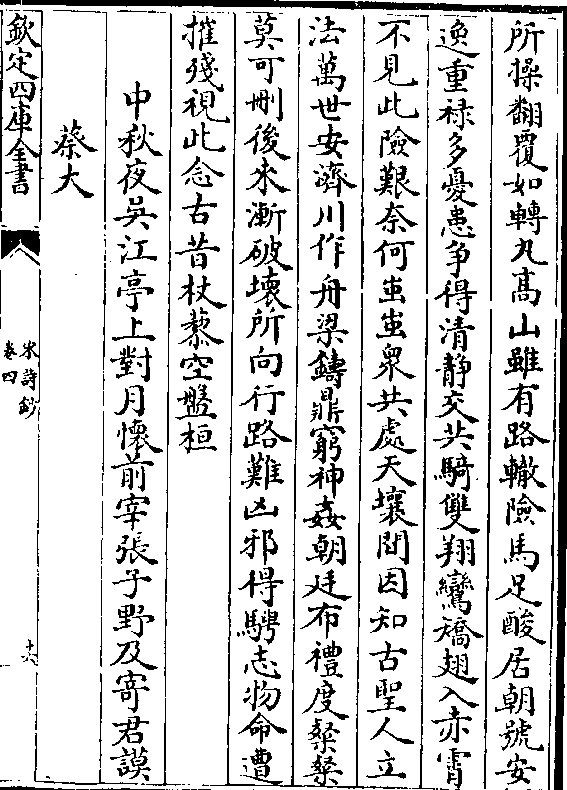 所操翻覆如轉丸高山雖有路轍險馬足酸居朝號安
逸重禄多憂患争得清静交共騎雙翔鸞矯翅入赤霄
不見此險艱奈何蚩蚩衆共處天壤間因知古聖人立
法萬世安濟川作舟梁鑄鼎窮神姦朝廷布禮度粲粲
莫可刪後來漸破壞所向行路難凶邪得騁志物命遭
摧殘視此念古昔杖藜空盤桓
中秋夜吳江亭上對月懷前宰張子野及寄君謨
蔡大
欽定四庫全書
宋詩鈔
卷四
十六